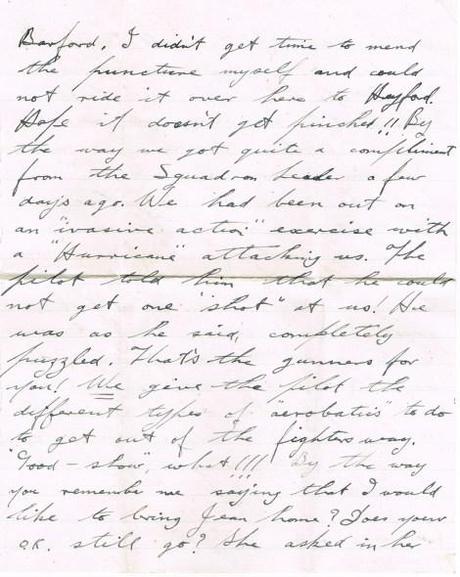 Barford. I didn't get time to mend
the puncture myself and could
not ride it over here to Heyford.
Hope it doesn't get pinched!! By
the way we got quite a compliment
from the Squadron Leader a few
days ago. We had been out on
an "ivasive action" exercise with
a "Hurricane" attacking us. The
pilot told him that he could
not get one "shot" at us! He
was as he said, completely
puzzled. That's the gunners for
you! We give the pilot the
different types of "aerobatics" to do
to get out of the fighters way.
"Good-show", what!!! By the way
you remember me saying that I would
like to bring Jean home? Does your
O.K. still go? She asked in her